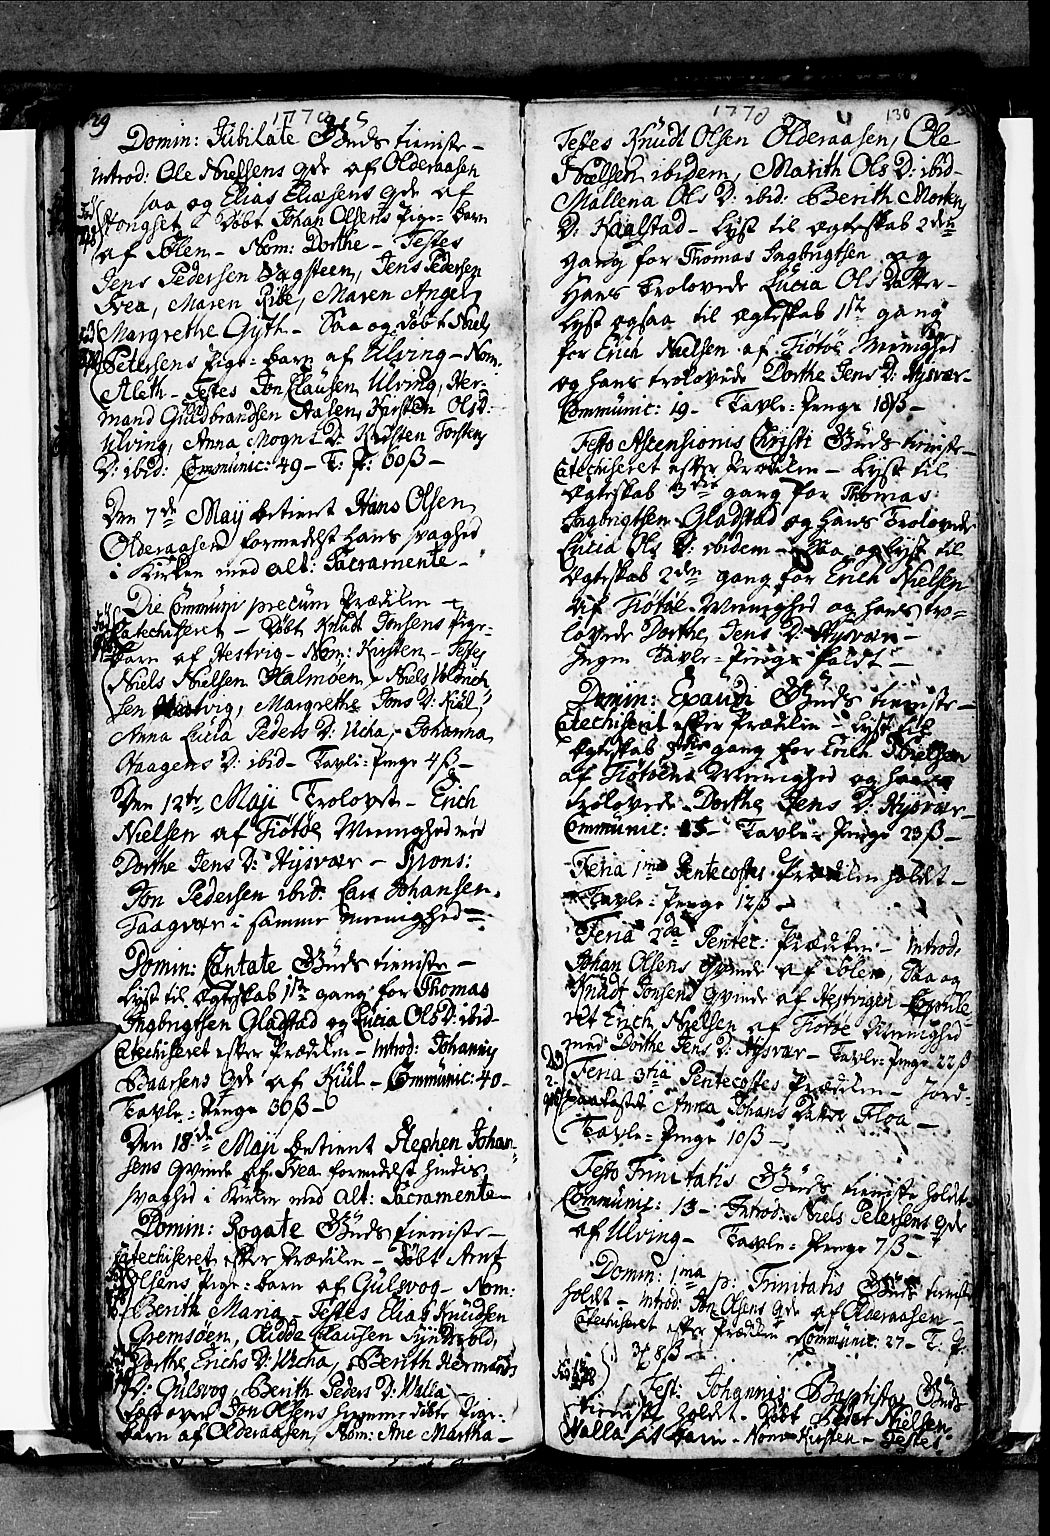 129
1770
Domin: Jubilate Guds tieniste -
introd: Ole Nielsens qde af Olderaasen
saa og Elias Eliasens qde af
Døbt Johan Olsens Pige-barn
af Sølen - Nom: Dorthe - Testes
Jens Pedersen Vagsteen, Jens Pedersen
Svea, Maren Ribe, Maren Angel,
Margrethe Gyth - Saa og døbt Niels
Petersens Pige-barn af Ulving - Nom:
Aleth - Testes Jon Clausen Ulving, Her-
mand Guldbrandsen Aasen, Kirsten Ols D:
Ulving, Anna Mogns D: Kirsten Torstens
D: ibid: Communic: 49 - T: P: 60ß -
Den 7de Maij betient Hans Olsen
Olderaasen formedelst hans svaghed
i Kirken med Alt: Sacramente -
Die Communi precum Prædiken -
Catechiseret - Døbt Knud Jonsens Pige-
barn af Hestvig - Nom: Kirsten - Testes
Niels Nielsen Halmøen, Niels
sen Margrethe Jons D: Kiul,
Anna Lucia Peders D: Vicha, Johanna
Haagens D: ibid - Tavle-Penge 4ß -
Den 12te Maji Trolovet - Erich
Nielsen af Tiøtøe Menighed med
Dorthe Jens D: Hysvær - Spons:
Jon Pedersen ibid: Lars Johansen
i samme Menighed -
Domin: Cantate Guds tieniste -
Lyst til Ægteskab 1ste gang for Thomas
Ingbrigtsen Gladstad og Lucia Ols D: ibid -
Catechiseret efter Prædiken - introd: Johannes
Baarsens qde af Kiul - Communic: 40 -
Tavle-Penge 30ß -
Den 18de Maji betient Stephen Johan-
sens qvinde af Svea formedelst hendis
svaghed i Kirken med Alt: Sacramente -
Domin: Rogate Guds tieniste -
Catechiseret efter Prædiken - Døbt Arnt
Olsens Pige-barn af Gulsvog - Nom:
Berith Maria - Testes Elias Knudsen
Gremsøen, Clausen
Dorthe Erichs D: Vicha, Berith Hermands
D: Gulsvog, Berith Peders D: Valla -
Læst over Jon Olsens hjemmedøbte Pige-
barn af Olderaasen, Nom: Ane Martha -
1770
130
Testes Knudt Olsen Olderaasen, Ole
Nielsen ibidem, Marith Ols D: ibid -
Mallena Ols D: ibid: Berith Mortens
D: Kaalstad - Lyst til Ægteskab 2den
gang for Thomas Ingbrigtsen og
Hans Trolovede Lucia Ols Datter -
Lyst ogsaa til Ægteskab 1ste gang
for Erich Nielsen af Tiøtøe Menighed
og hans trolovede Dorthe Jens D: Hysvær -
Communic: 19 - Tavle-Penge 18ß -
Festo Ascensionis Christi Guds tieniste -
Catechiseret efter Prædiken - Lyst til
Ægteskab 3die gang for Thomas
Ingbrigtsen Gladstad og hans Trolovede
Lucia Ols D: ibidem - Saa og Lyst til
Ægteskab 2den gang for Erich Nielsen
af Tiøtøe Menighed og hans tro-
lovede Dorthe Jens D: Hysvær -
Ingen Tavle-Penge faldt -
Domin: Exaudi Guds tieniste -
Catechiseret efter Prædiken - Lyst til
Ægteskab 3die gang for Erich Nielsen
af Tiøtøens Menighed og hans
trolovede Dorthe Jens D: Hysvær -
Communic: 15 - Tavle-Penge 23ß -
Feria 1ma Pentecostes Prædiken holdt -
Tavle-Penge 12ß -
Feria 2da Pentec: Prædiken - introd:
Johan Olsens qvinde af Sølen, saa og
Knudt Jonsens qvinde af Hestvigen - Copule-
ret Erich Nielsen af Tiøtøe Menighed
med Dorthe Jens D: Hysvær - Tavle-Penge 22ß
Feria 3tia Pentecostes Prædiken - Jord-
paakastet Anna Johans Datter Floa -
Tavle-Penge 10ß -
Festo Trinitatis Guds tieniste holdt -
Communic: 13 - Introd: Niels Petersens qde
af Ulving - Tavle-Penge 7ß -
Domin: 1ma p: Trinitatis Guds tieniste
holdt - introd: Jon Olsens qde af Olderaasen -
Catechiseret efter Prædiken Communic: 27 - T: P:
8ß -
Fest: Johannis Baptistæ Guds
tieniste holdt. Døbt Peder Nielsen
Valla barn - Nom: Kirsten - Testes